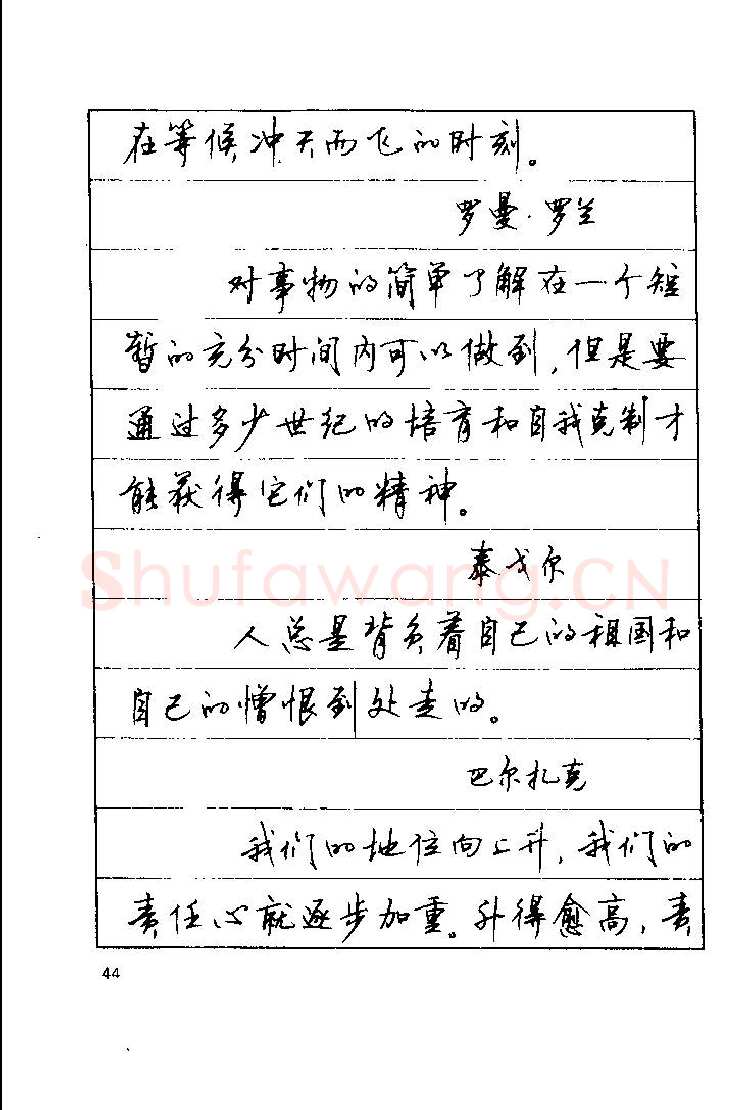 在等候冲天而飞的时刻。
罗曼·罗兰
对事物的简单了解在一个短
暂的充分时间内可以做到,但是要
通过多少世纪的培育和自我克制才
能获得它们的精神。
泰戈尔
Shufawang.CN
人总是背负着自己的祖国和
自己的憎恨到处走的。
巴尔扎克
我们的地位向上升,我们的
责任心就逐步加重。升得愈高,责
44